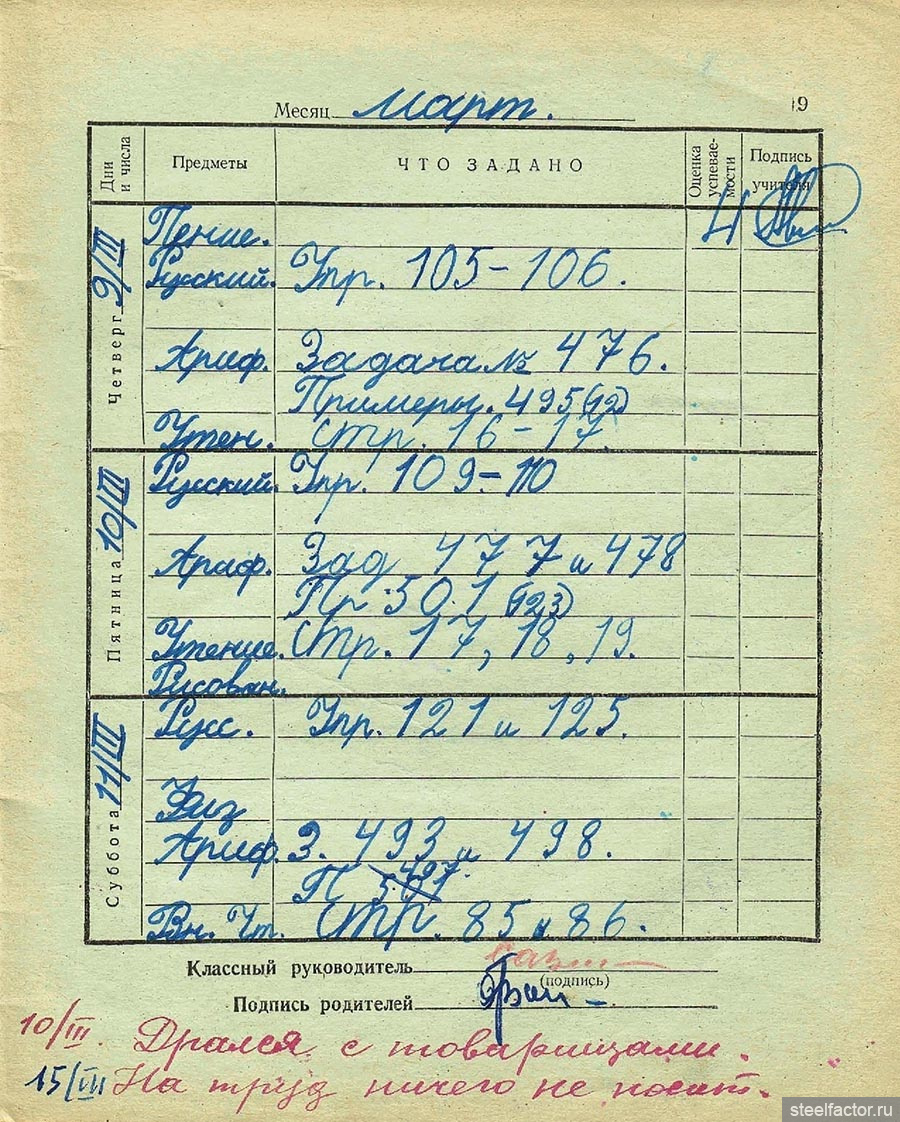 Месяц Март. 19
Дни и числа Предметы ЧТО ЗАДАНО Оценка успеваемости Подпись учителя
Четверг 9/III
Пение. 4
Русский. Упр. 105-106.
Ариф. Задача № 476.
Примеры. 495 (12)
Чтен. стр. 16-17.
Пятница 10/III
Русский. Упр. 109-110
Ариф. Зад 477 и 478
Пр 501 (123)
Чтение. Стр. 17, 18, 19.
Рисован.
Суббота 11/III
Рус. Упр. 121 и 125.
Физ
Ариф. З. 493 и 498.
П 497.
Вн. Чт. стр. 85 и 86.
Классный руководитель
(подпись)
Подпись родителей
10/III. Дрался с товарищами.
15/III На труд ничего не носит.
steelfactor.ru